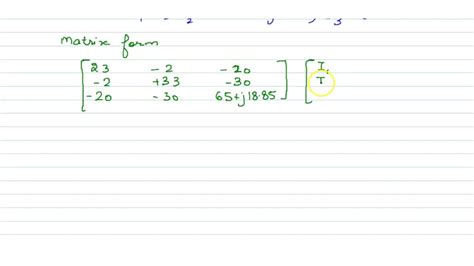 Matrix form
[ 23 -2 -20 ] [ I₁
[ -2 +33 -30 ] I
[ -20 -30 65+j18.85 ]